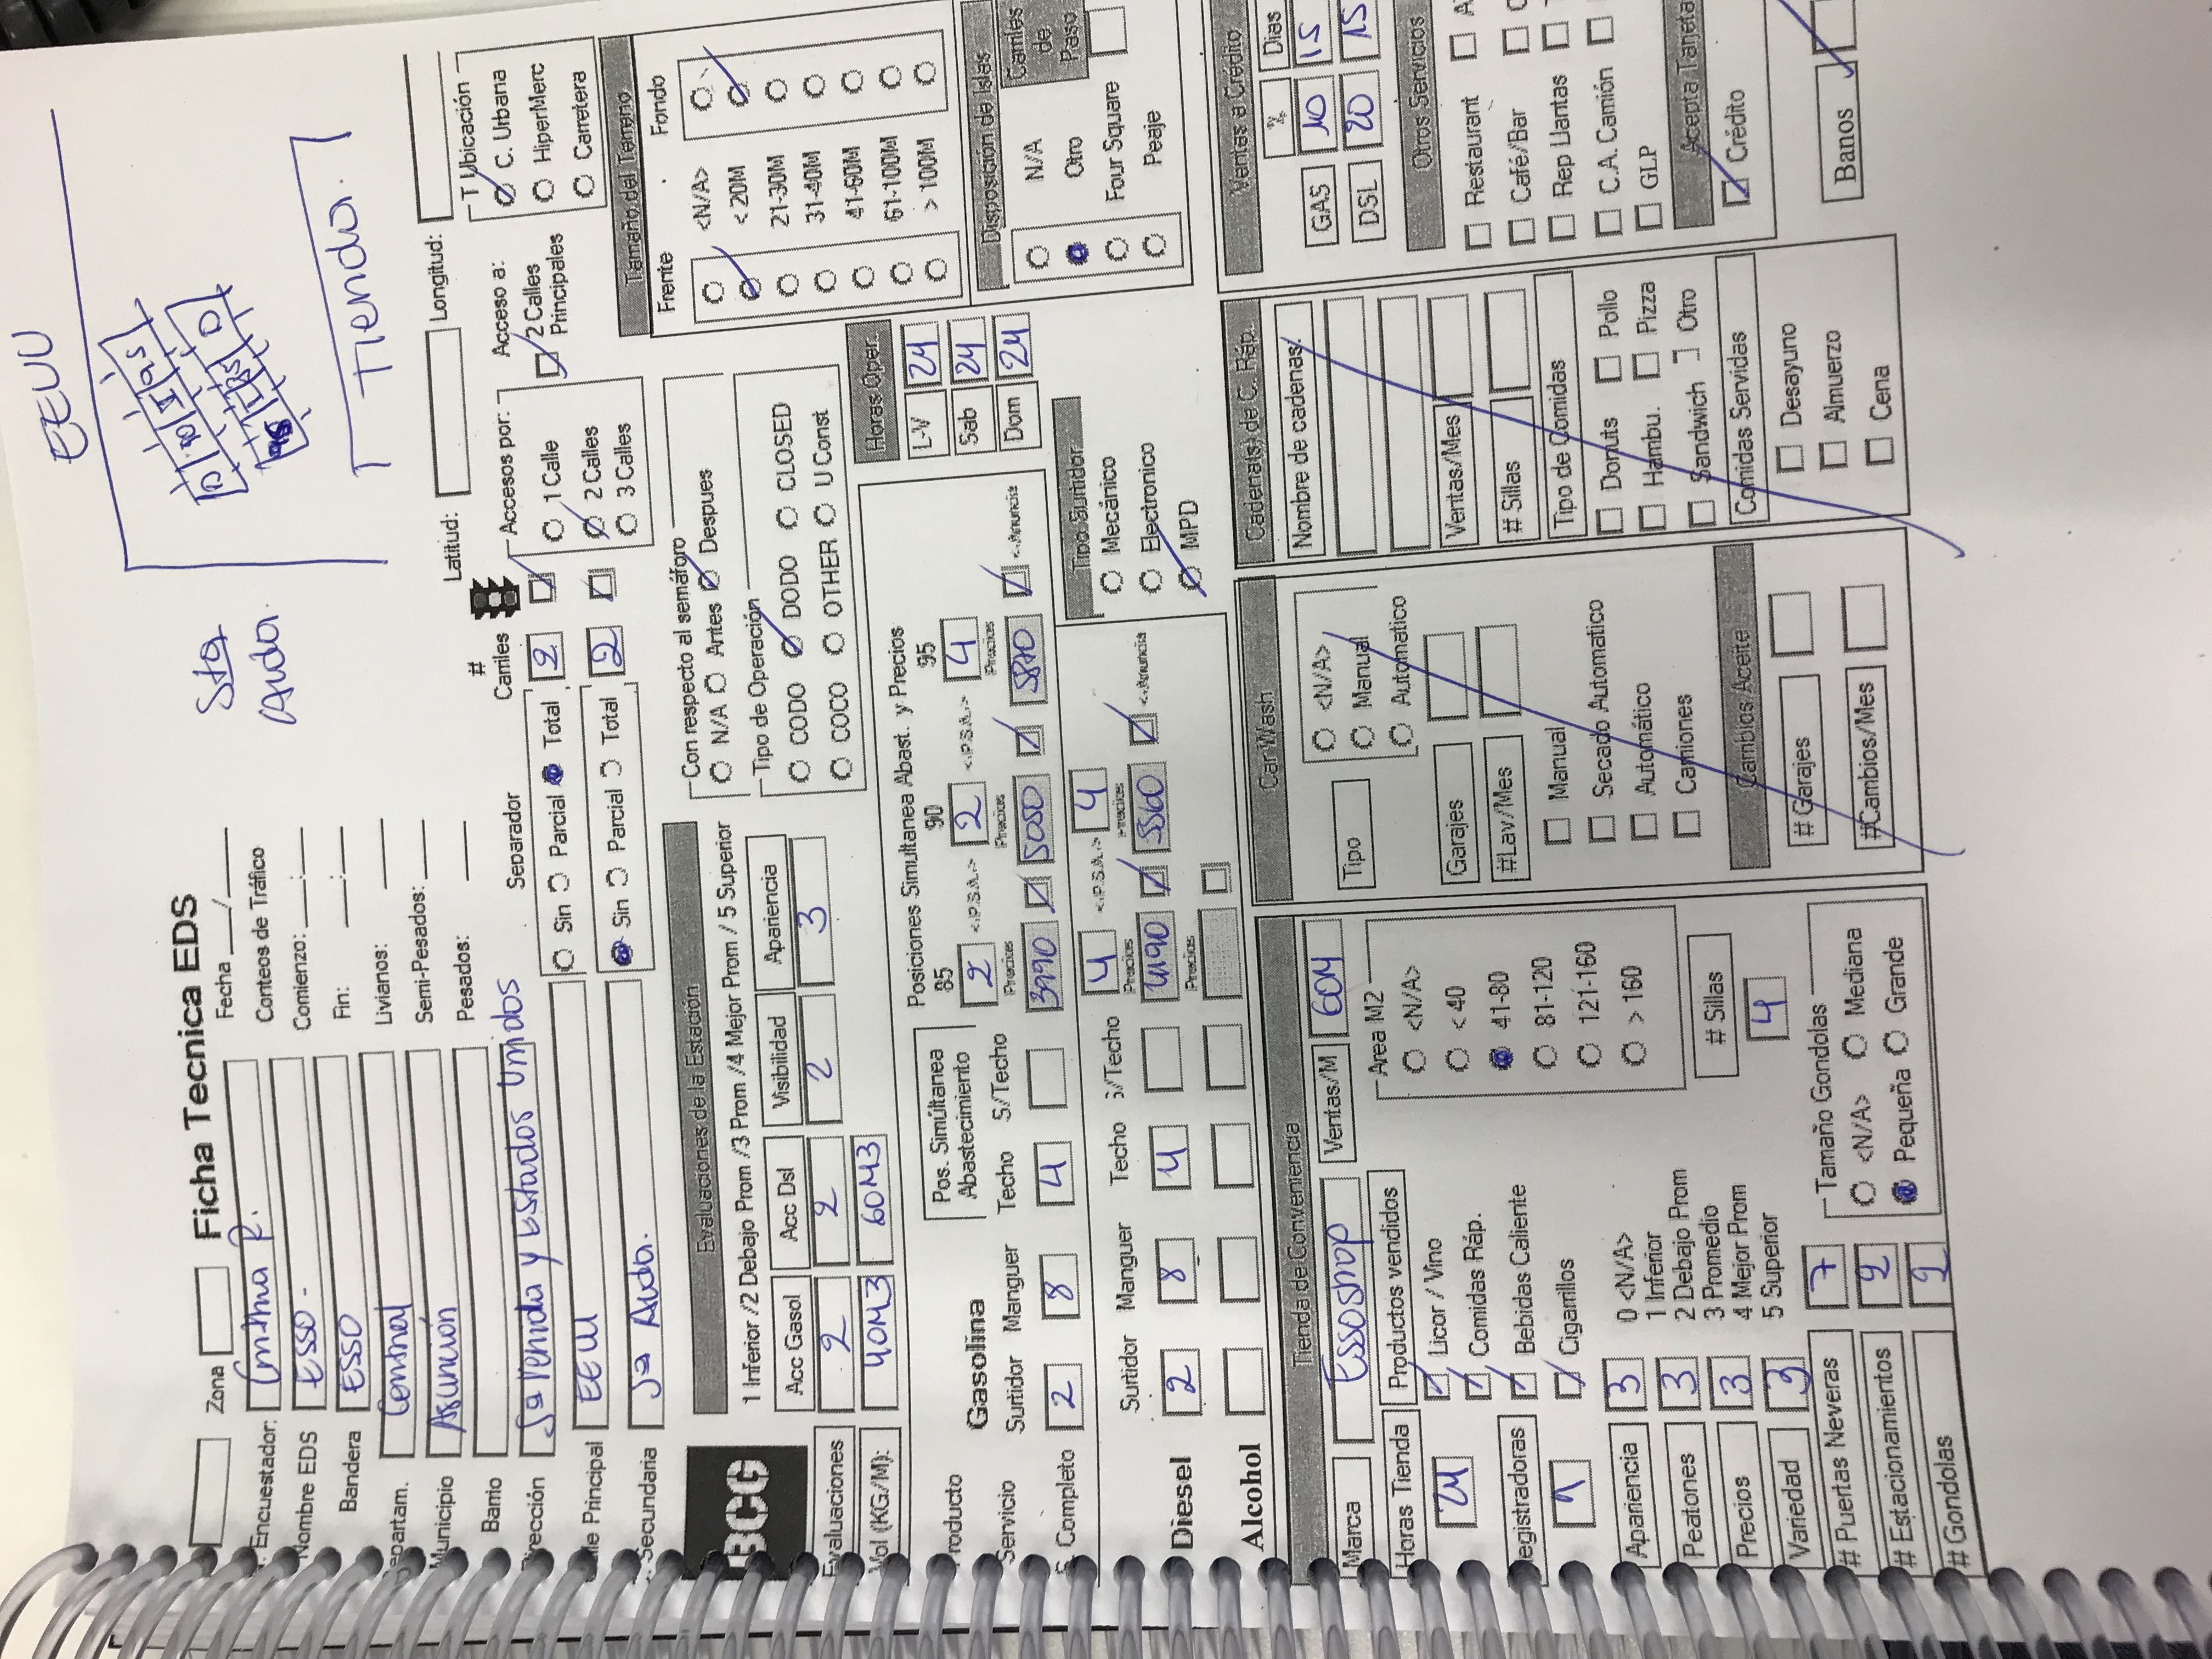 EEUU
Sta
Avda.
Tienda.
Zona
Ficha Tecnica EDS
Fecha __/__
Encuestador: Cinthia R.
Conteos de Tráfico
Nombre EDS Esso.
Comienzo: __:__
Bandera Esso
Fin: __:__
Departam. Central
Livianos:
Municipio Asunción
Semi-Pesados:
Barrio
Pesados:
Dirección 5ª Avenida y Estados Unidos
Calle Principal EEUU
Secundaria 5ª Avda.
Latitud:
Longitud:
Separador
# Carriles
Sin Parcial Total 2
Sin Parcial Total 2
Accesos por:
1 Calle
2 Calles
3 Calles
Acceso a:
2 Calles Principales
T Ubicación
C. Urbana
HiperMerc
Carretera
Evaluaciones de la Estación
1 Inferior /2 Debajo Prom /3 Prom /4 Mejor Prom / 5 Superior
BCG
Acc Gasol Acc Dsl Visibilidad Apariencia
Evaluaciones 2 2 2 3
Vol (KG/M): 40M3 60M3
Con respecto al semáforo
N/A Antes Despues
Tipo de Operación
CODO DODO CLOSED
COCO OTHER U Const
Tamaño del Terreno
Frente Fondo
<N/A>
< 20M
21-30M
31-40M
41-60M
61-100M
> 100M
Horas Oper.
L-V 24
Sab 24
Dom 24
Disposición de Islas
N/A
Otro
Four Square
Peaje
Carriles de Paso
Producto Gasolina
Pos. Simúltanea Abastecimiento
Posiciones Simultanea Abast. y Precios
85 90 95
2 <.P.S.A.> 2 <.P.S.A.> 4
Servicio Surtidor Manguer Techo S/Techo
Precios Precios Precios
S. Completo 2 8 4
3990 5050 5870 <.Anuncia
Diesel
Surtidor Manguer Techo S/Techo
4 <.P.S.A.> 4
Precios Precios
2 8 4
4190 5560 <.Anuncia
Precios
Alcohol
Tipo Surtidor
Mecánico
Electronico
MPD
Tienda de Conveniencia
Marca Esso shop Ventas/M 60M
Horas Tienda 24
Productos vendidos
Licor / Vino
Comidas Ráp.
Bebidas Caliente
Cigarrillos
Registradoras 1
Area M2
<N/A>
< 40
41-80
81-120
121-160
> 160
Apariencia 3
Peatones 3
Precios 3
Variedad 3
0 <N/A>
1 Inferior
2 Debajo Prom
3 Promedio
4 Mejor Prom
5 Superior
# Sillas
4
# Puertas Neveras 7
# Estacionamientos 2
# Gondolas 2
Tamaño Gondolas
<N/A> Mediana
Pequeña Grande
Car Wash
Tipo
<N/A>
Manual
Automatico
Garajes
#Lav/Mes
Manual
Secado Automatico
Automático
Camiones
Cambios Aceite
# Garajes
#Cambios/Mes
Cadena(s) de C. Ráp.
Nombre de cadenas:
Ventas/Mes
# Sillas
Tipo de Comidas
Donuts Pollo
Hambu. Pizza
Sandwich Otro
Comidas Servidas
Desayuno
Almuerzo
Cena
Ventas a Crédito
% Dias
GAS 10 15
DSL 20 15
Otros Servicios
Restaurant
Café/Bar
Rep Llantas
C.A. Camión
GLP
Acepta Tarjeta
Crédito
Banos